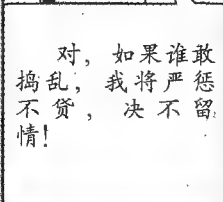 对，如果谁敢
捣乱，我将严惩
不贷，决不留
情！